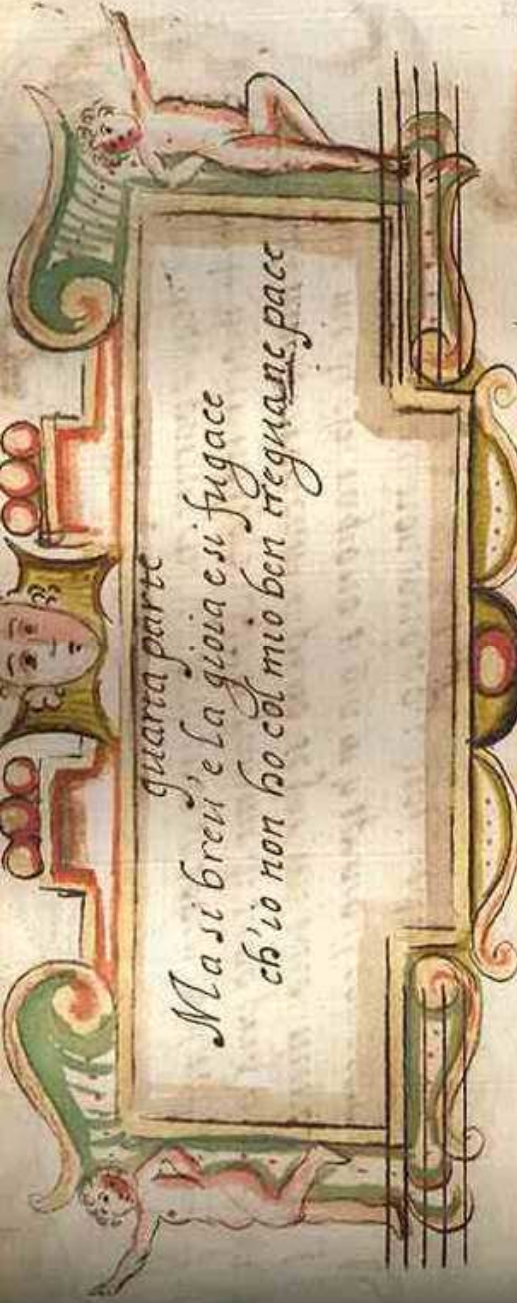 quarta parte
Ma si breu'e la gioia e si fugace
ch'io non ho col mio ben tregua ne pace